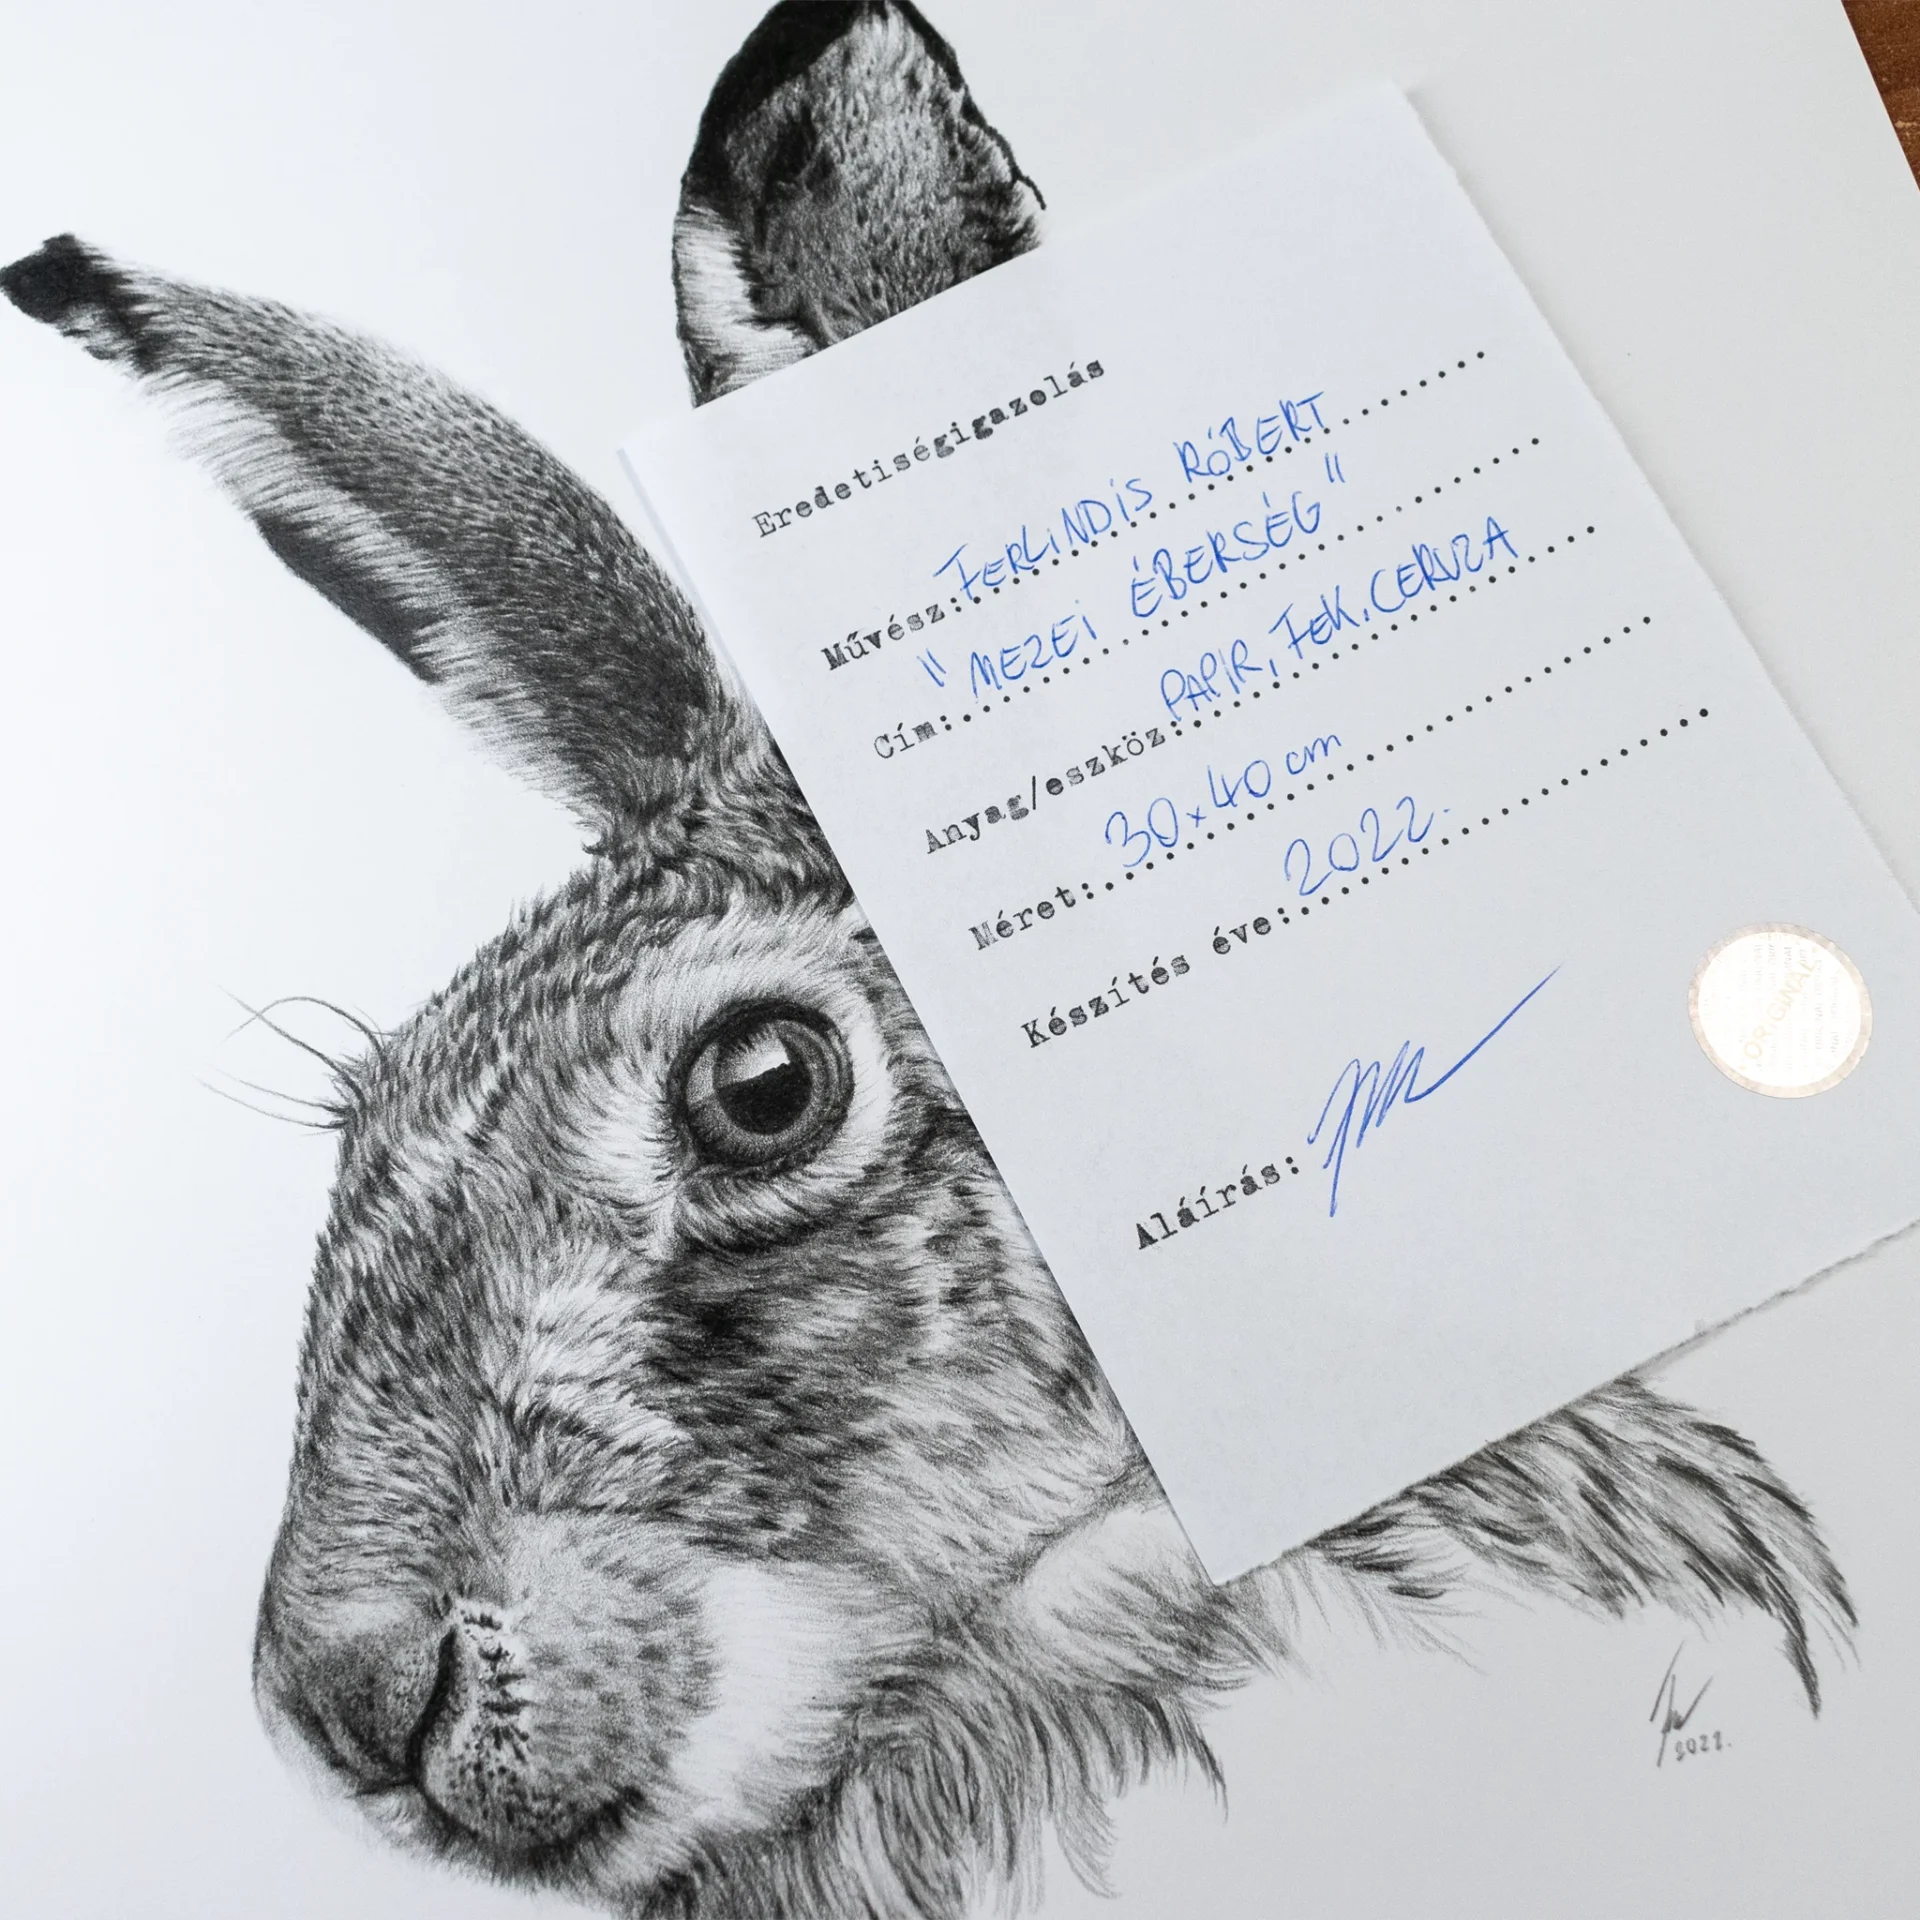 Eredetiségigazolás
Művész: FERLINDIS RÓBERT
Cím: "MEZEI ÉBERSÉG"
Anyag/eszköz: PAPIR, FEK. CERUZA
Méret: 30x40 cm
Készítés éve: 2022.
Aláírás:
ORIGINAL
2022.